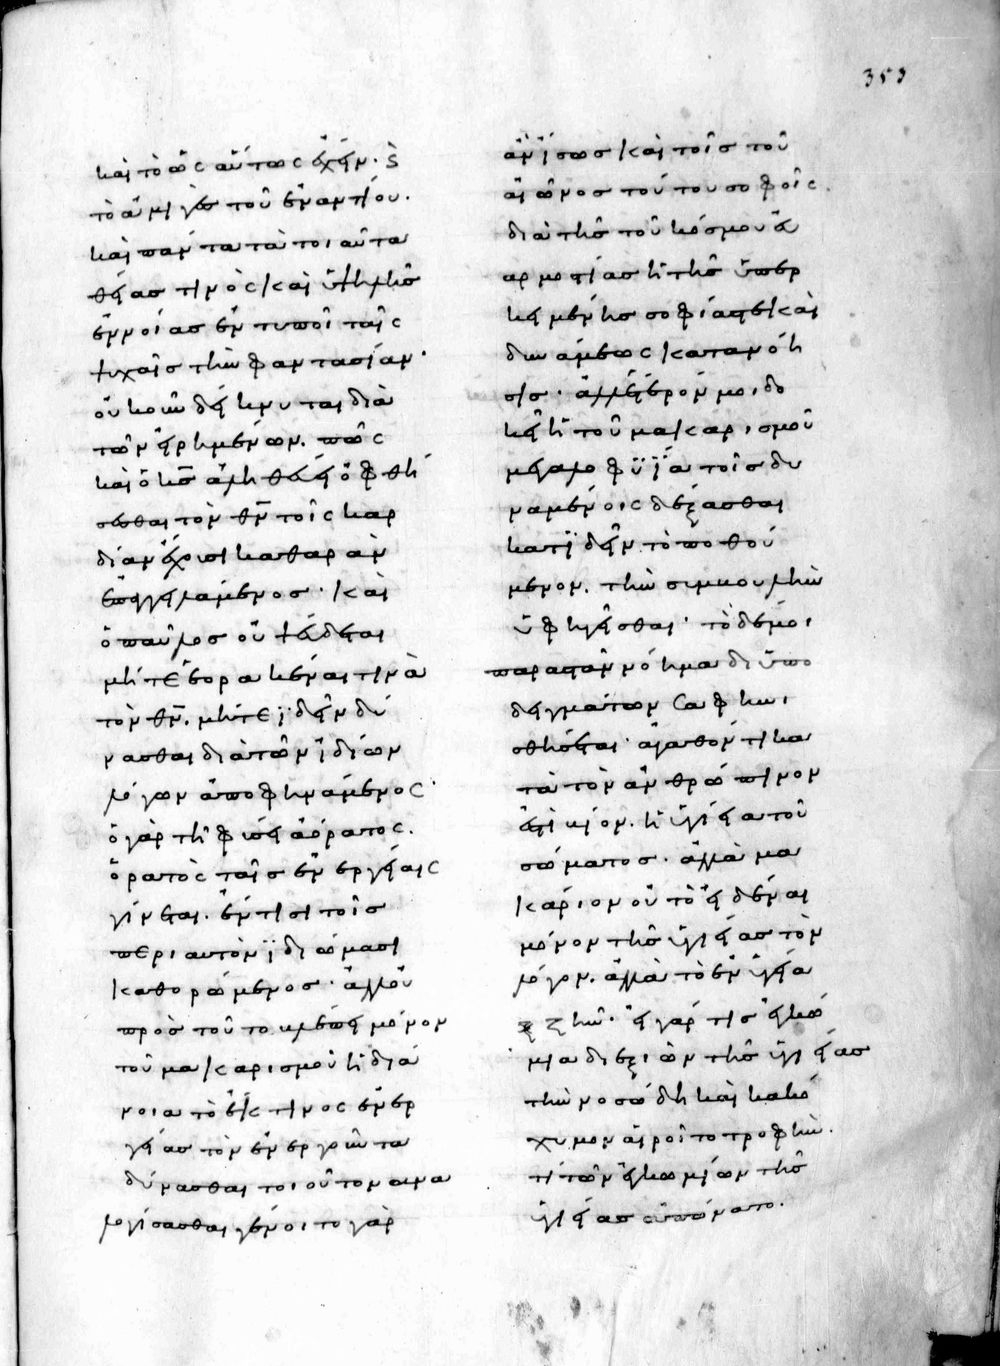 353
καὶ τὸ ὡς αὕτως ἔχειν· καὶ
τὸ ἀμιγὲς τοῦ ἐναντίου.
καὶ πάντα τὰ τοιαῦτα
θείας τινὸς καὶ ὑψηλῆς
ἐννοίας ἐντυποῖ ταῖς
ψυχαῖς τὴν φαντασίαν·
οὐκοῦν δείκνυται διὰ
τῶν εἰρημένων. πῶς
καὶ ὁ κς ἀληθεύει ὀφθή
σεσθαι τὸν θν τοῖς καρ
δίαν ἔχουσι καθαρὰν
ἐπαγγειλάμενος· καὶ
ὁ παῦλος οὐ ψεύδεται
μήτε ἑορακέναι τινὰ
τὸν θν. μήτε ἰδεῖν δύ
νασθαι διὰ τῶν ἰδίων
λόγων ἀποφηνάμενος·
ὁ γὰρ τῇ φύσει ἀόρατος.
ὁρατὸς ταῖς ἐνεργείαις
γίνεται. ἔν τισι τοῖς
περι αυτὸν ἰδιώμασι
καθορώμενος· ἀλλ οὐ
πρὸς τοῦτο βλέπει μόνον
τοῦ μακαρισμοῦ ἡ διά
νοια τὸ ἔκ τινος ἐνερ
γείας τὸν ἐνεργοῦντα
δύνασθαι τοιοῦτον ανα
λογίσασθαι γένοιτο γὰρ
ἂν ἴσως καὶ τοῖς τοῦ
αἰῶνος τούτου σοφοῖς.
διὰ τῆς τοῦ κόσμου εὐ
αρμοστίας ἡ τῆς ὑπερ
κειμένης σοφίας τε καὶ
δυνάμεως κατανόη
σις· ἀλλ ἕτερόν μοι δο
κεῖ ἡ τοῦ μακαρισμοῦ
μεγαλοφυΐα τοῖς δυ
ναμένοις δέξασθαι
κατιδεῖν τὸ ποθού
μενον. τὴν συμβουλὴν
ὑφηγεῖσθαι· τὸ δέ μοι
παραστὰν νόημα δι ὑπο
δειγμάτων σαφηνι
σθήσεται· ἀγαθόν τι κα
τὰ τὸν ἀνθρώπινον
ἐστὶ βίον. ἡ ὑγίεια τοῦ
σώματος. ἀλλὰ μα
κάριον οὐ τὸ εἰδέναι
μόνον τῆς ὑγιείας τὸν
λόγον. ἀλλὰ τὸ ἐν ὑγεία
ζῆν· εἰ γάρ τις ἐγκώ
μια διεξιὼν τῆς ὑγιείας
τὴν νοσώδη καὶ κακό
χυμον αἱροῖτο τροφὴν.
τί τῶν ἐγκωμίων τῆς
ὑγιείας